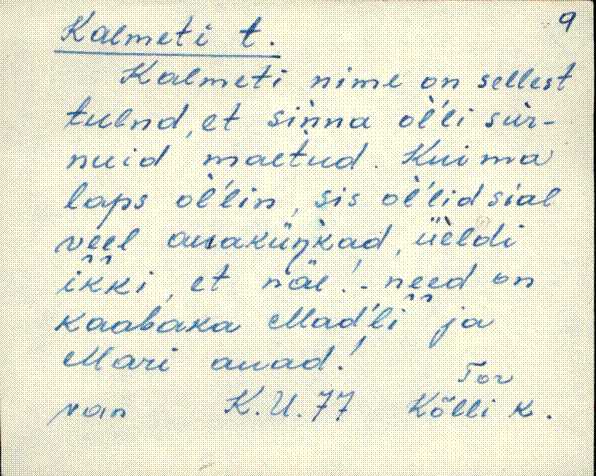 9
Kalmeti t.
Kalmeti nime on sellest
tulnd, et sinna òl'li sùr-
nuid maetud. Kui ma
laps òl'lin, sis òl'lid sial
veel auakünkad, üeldi
ikki, et näe! - need on
kaabaka Mad'li ja
Mari auad!
Tor
van K.U.77 Kõlli k.